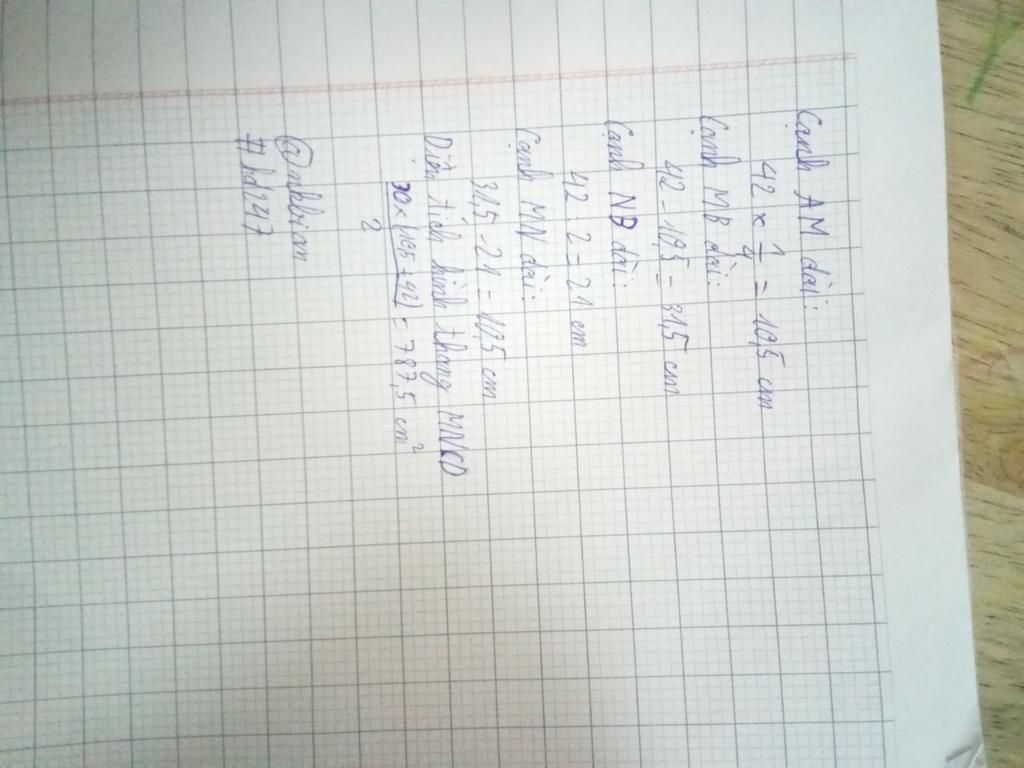 Cạnh AM dài:
42 x 1/4 = 10,5 cm
Cạnh MB dài:
42 - 10,5 = 31,5 cm
Cạnh NB dài:
42 : 2 = 21 cm
Cạnh MN dài:
31,5 - 21 = 10,5 cm
Diện tích hình thang MNCD
30 x (10,5 + 42) / 2 = 787,5 cm²
#hd247